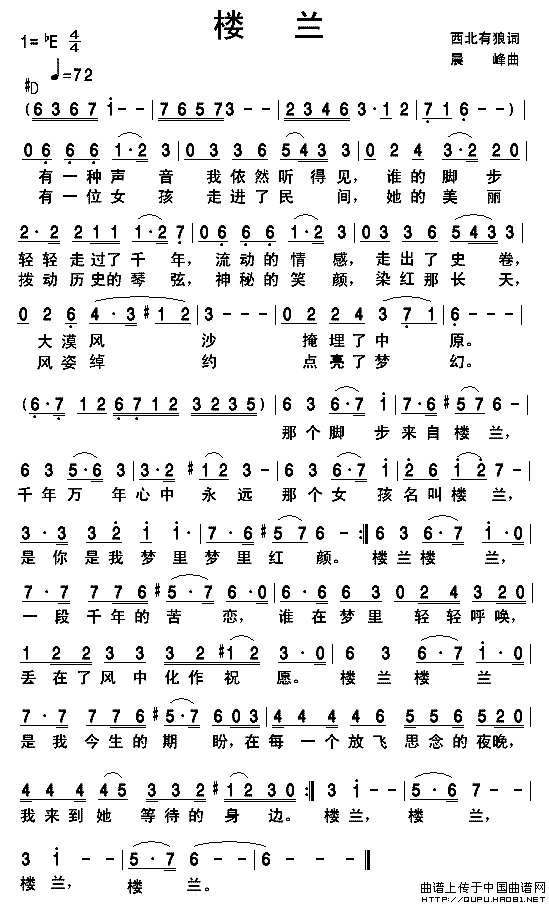 楼 兰
1=♭E 4/4
西北有狼词
♩=72
晨 峰曲
#D
(6367 i - - | 76573 - - | 23463·12 | 716 - - |
0666 1·23 | 0336543 | 024 3·220 |
有一种声 音 我依然听得见，谁的脚 步
有一位女 孩 走进了民 间，她的美 丽
2·2211 1·2 | 0666 1·23 | 033605433 |
轻轻走过了千 年，流动的情 感，走出了史 卷，
拨动历史的琴 弦，神秘的笑 颜，染红那长 天，
026 4·3#12 | 3 - - - | 02224371 | 6 - - - |
大漠风 沙 掩埋了中 原。
风姿绰 约 点亮了梦 幻。
(6·7 126712 3235) | 63 6·7 i | 7·676#576 - |
那个脚 步来自楼兰，
63 5·63 | 3·2#123 - | 63 6·7i | 26 i·276 - |
千年万 年心中 永 远 那个女 孩名叫楼 兰，
3·3 32 i i· | 7·7#576 - :‖ 63 6·7 | i·0
是你是我梦里梦里红 颜。楼兰楼 兰，
7·7 776 #5·76·0 | 6·66303024320 |
一段千年的苦 恋，谁在梦里 轻轻呼唤，
122333 3#12 | 3·0 6 | 36·7 | i·0
丢在了风中化作 祝 愿。 楼 兰楼 兰
7·7 776 #5·7 603 | 4444456 556520 |
是我今生的期 盼，在每一个放飞 思念的夜晚，
44445 332 #1230 :‖ 3i - - | 5·67 - - |
我来到她 等待的身 边。 楼兰， 楼 兰，
3i - - | 5·76 - - ‖
楼兰， 楼 兰。
曲谱上传于中国曲谱网
HTTP://QUPU.HAO81.NET